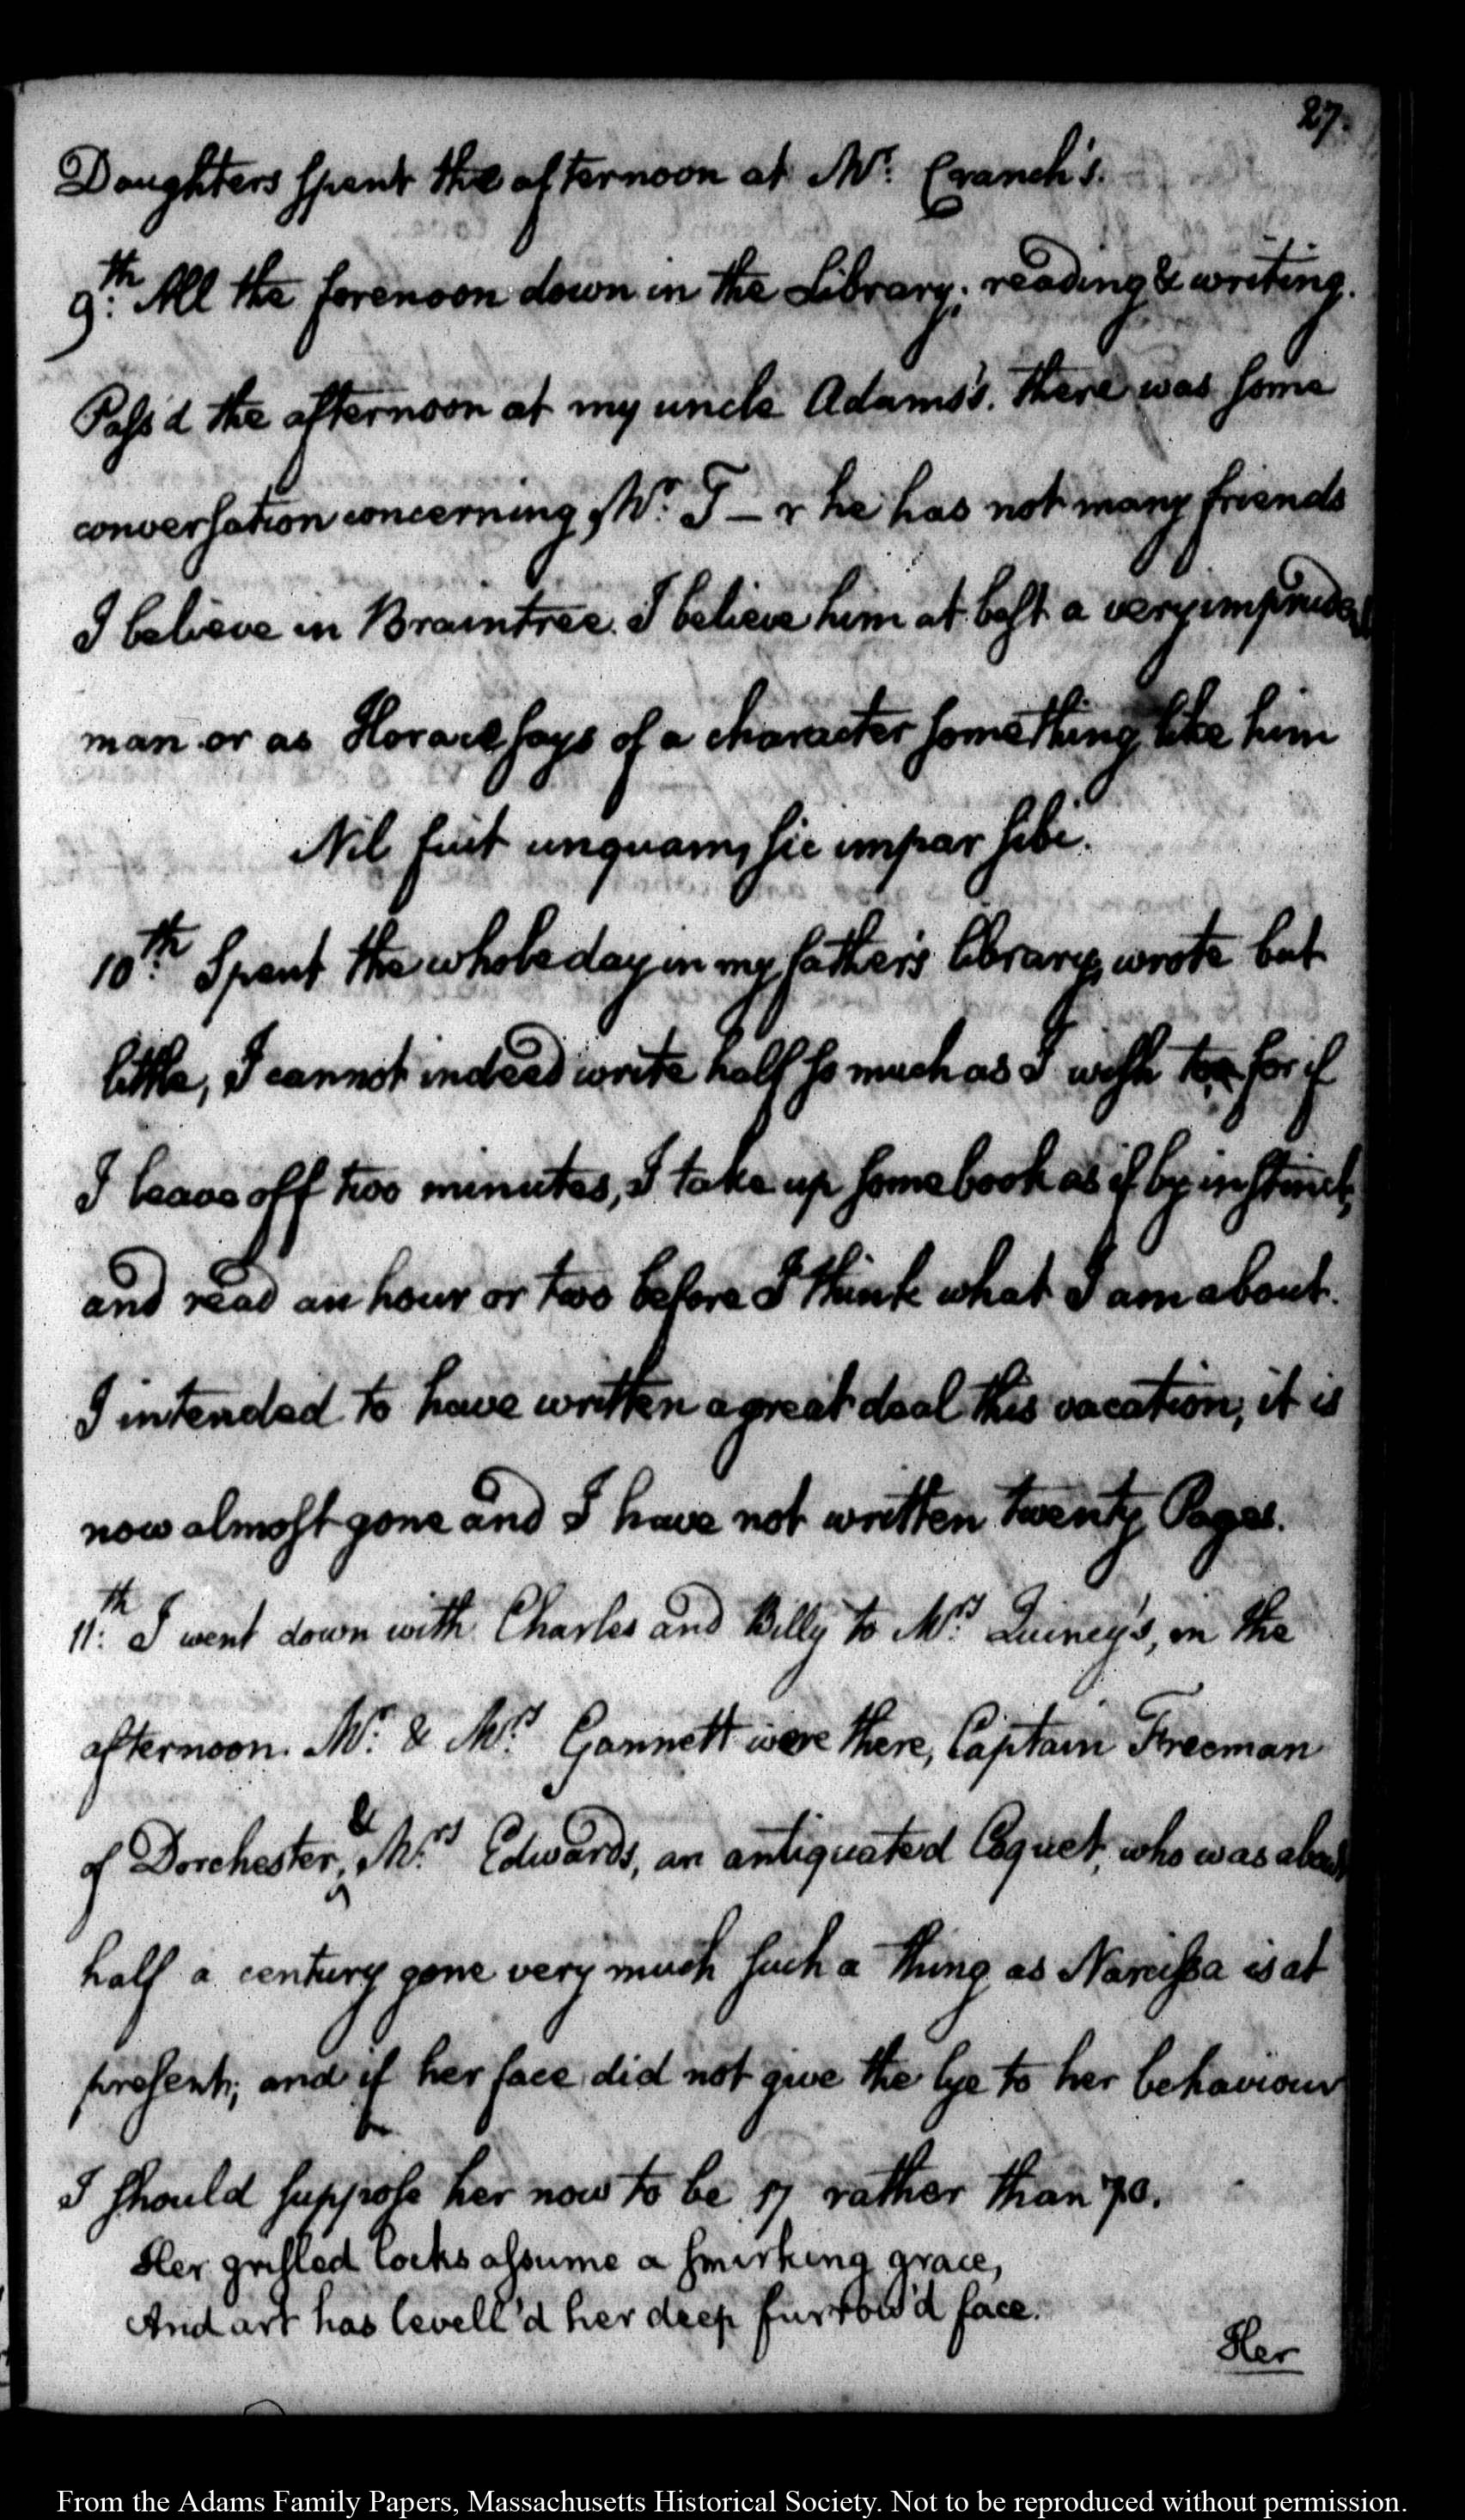 27.
Daughters spent the afternoon at Mr. Cranch's.
9th. All the forenoon down in the Library; reading & writing.
Pass'd the afternoon at my uncle Adams's. There was some
conversation concerning Mr. T—r he has not many friends
I believe in Braintree. I believe him at best a very imprudent
man or as Horace says of a character something like him
Nil fuit unquam, sic impar sibi.
10th. Spent the whole day in my father's library, wrote but
little, I cannot indeed write half so much as I wish to, for if
I leave off two minutes, I take up some book as if by instinct,
and read an hour or two before I think what I am about.
I intended to have written a great deal this vacation, it is
now almost gone and I have not written twenty Pages.
11th. I went down with Charles and Billy to Mrs. Quincy's, in the
afternoon. Mr. & Mrs. Gannett were there, Captain Freeman
of Dorchester, & Mrs. Edwards, an antiquated Coquet, who was about
half a century gone very much such a thing as Narcissa is at
present; and if her face did not give the lye to her behaviour
I should suppose her now to be 17 rather than 70.
Her grisled locks assume a smirking grace,
And art has levell'd her deep furrow'd face.
Her
From the Adams Family Papers, Massachusetts Historical Society. Not to be reproduced without permission.